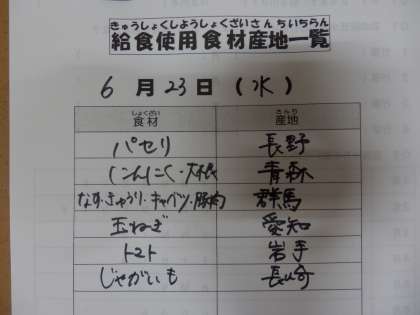 きゅうしょくしようしょくざいさんちいちらん
給食使用食材産地一覧
6月23日(水)
しょくざい さんち
食材 産地
パセリ 長野
にんにく・大根 青森
なす・きゅうり・キャベツ・豚肉 群馬
玉ねぎ 愛知
トマト 岩手
じゃがいも 長崎